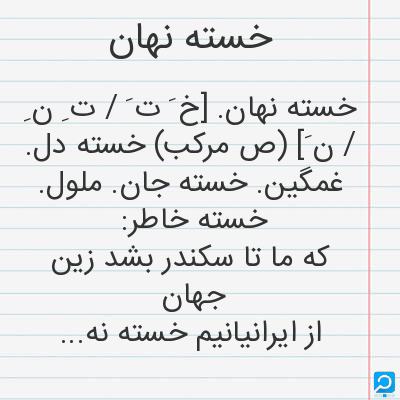 خسته نهان
خسته نهان. [خ َ ت َ / ت ِ ن ِ
/ ن َ] (ص مرکب) خسته دل.
غمگین. خسته جان. ملول.
خسته خاطر:
که ما تا سکندر بشد زین
جهان
از ایرانیانیم خسته نه...